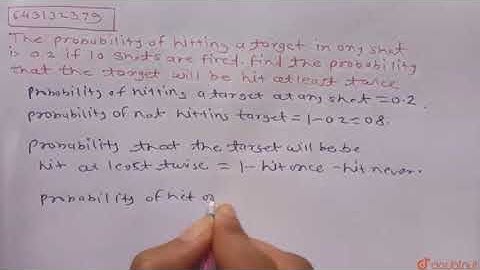 643132379
The probability of hitting a target in any shot
is 0.2 if 10 shots are fired. find the probability
that the target will be hit atleast twice
probability of hitting a target at any shot = 0.2.
probability of not hitting target = 1-0.2 = 0.8.
probability that the target will be be
hit at least twise = 1- hit once - hit never.
probability of hit
doubtnut